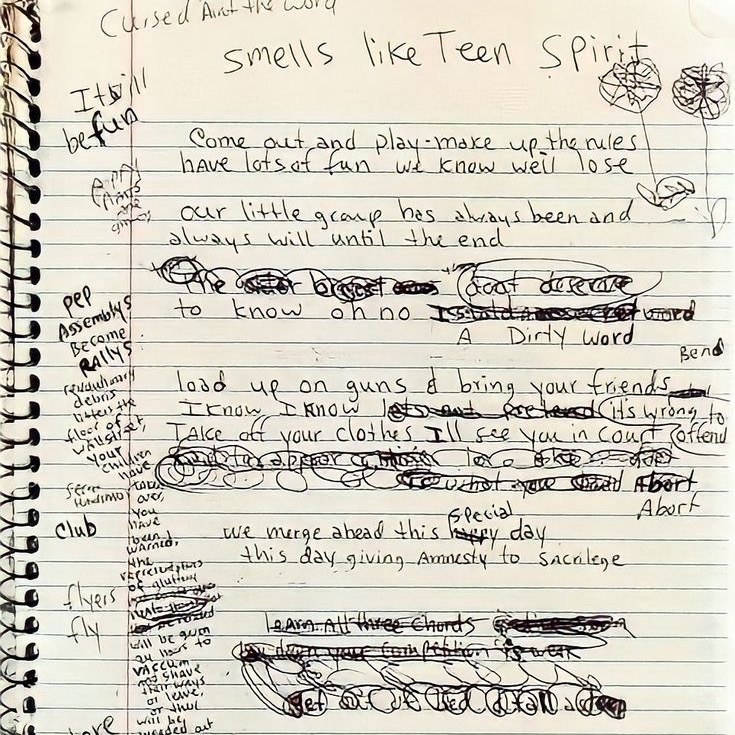 Cursed Aint the word
smells like Teen Spirit
It will
be fun
Come out and play-make up the rules
have lots of fun we know we'll lose
our little group has always been and
always will until the end
The
dont deserve
to know oh no Is told a secret word
A Dirty word
pep
Assemblys
Become
RALLYS
Bend
load up on guns & bring your friends
I know I know lets not pretend its wrong to
offend
Take off your clothes I'll see you in court
what you
Abort
Abort
revolutionary
debris
litters the
floor of
wallstreet,
your
children
have
taken
over,
you
have
been
warned,
the
representatives
of gluttony
will be given
24 hours to
vaccum
and shave
their ways
or leave,
or they
will be
weeded out
club
special
we merge ahead this happy day
this day giving Amnesty to sacrilege
flyers
fly
learn All three chords
lay down your competition is weak
get